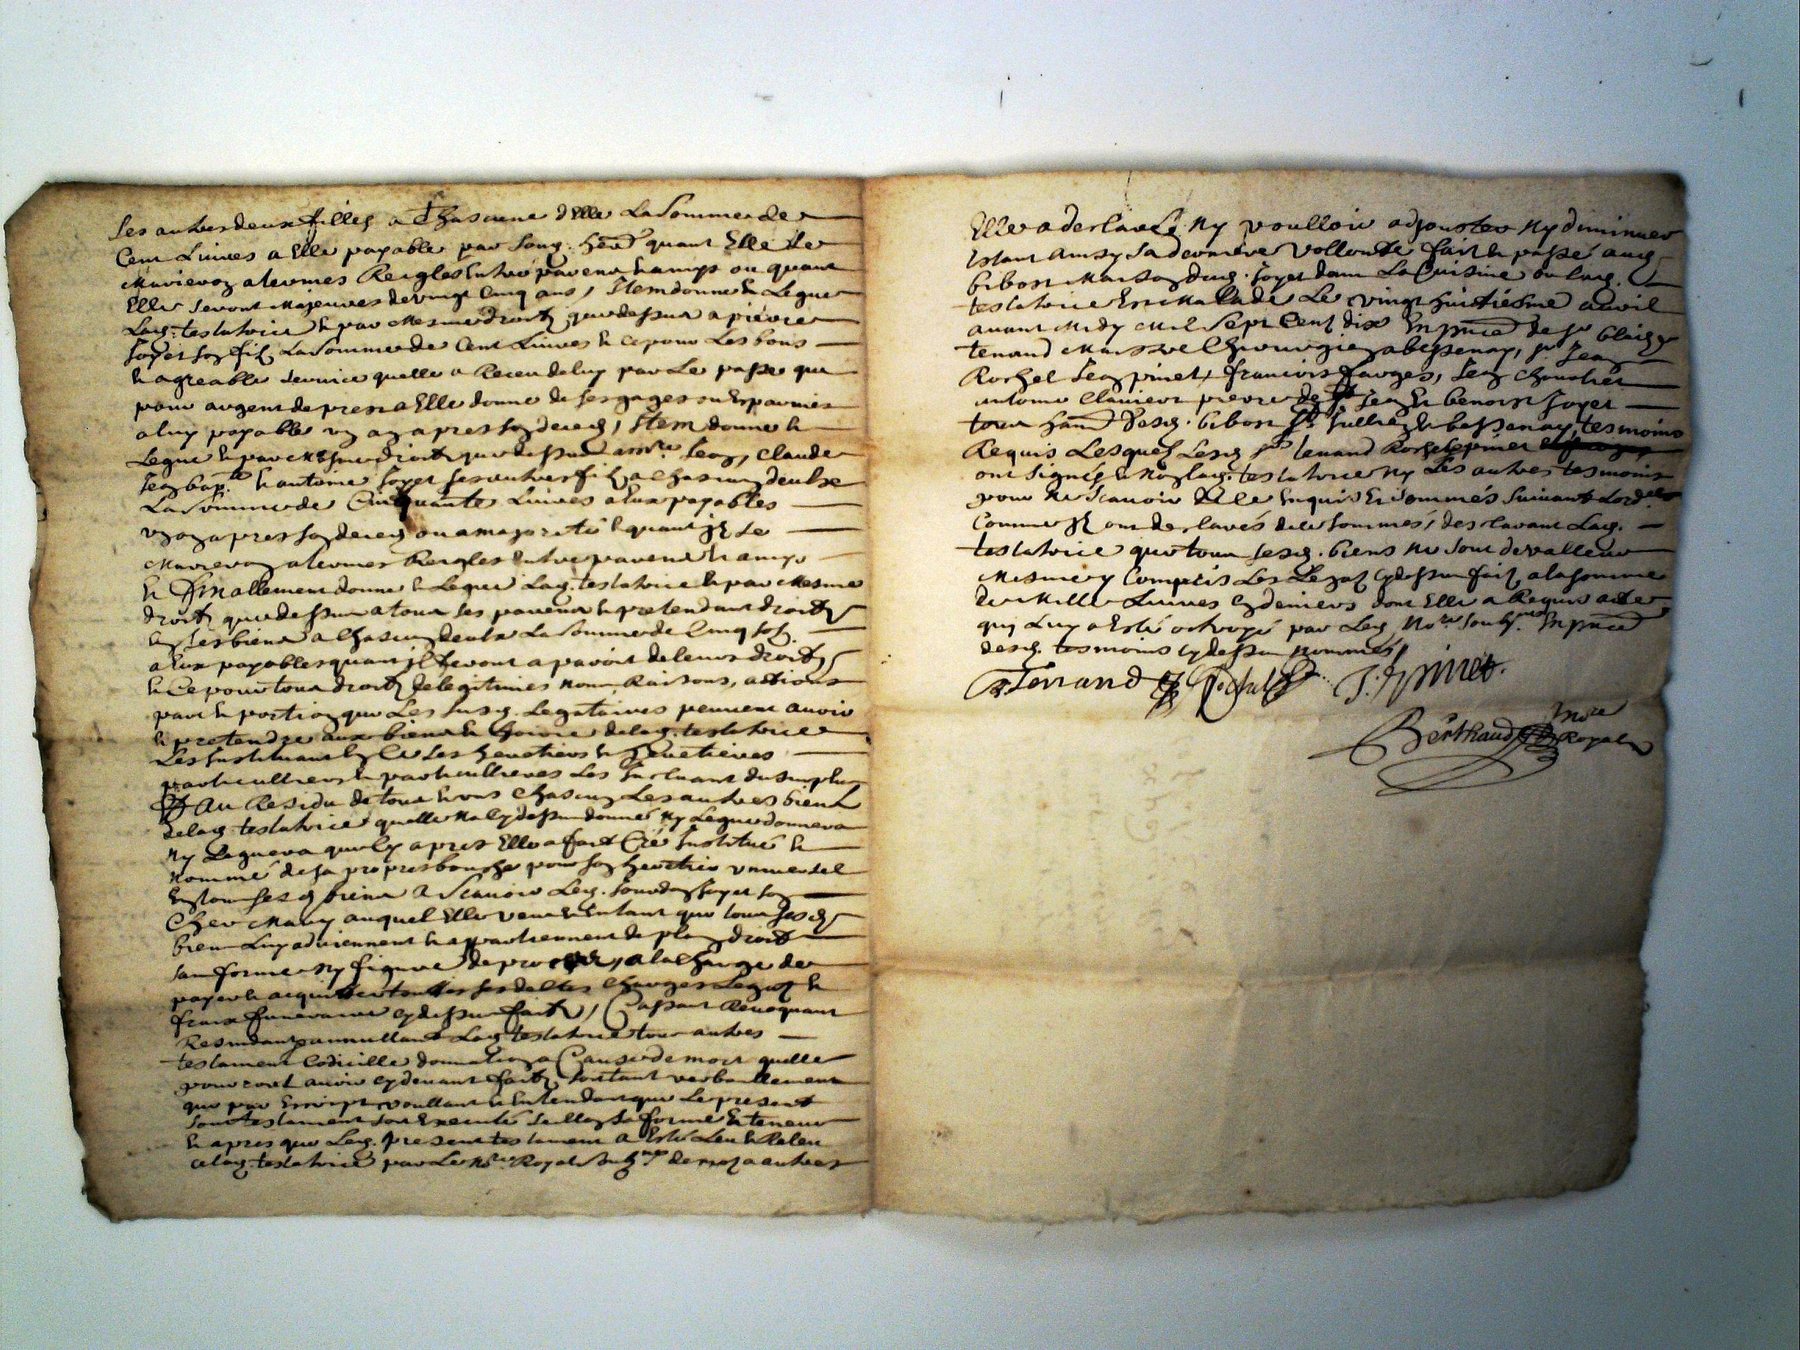 ses autres deux filles a Chascune d'Elle La Somme de
Cent Livres a Elle payable par Sond. herit quant Elle Se
Marieron a termes Reiglés Entre parens & amys ou quant
Elle Seront Majeures de vingt Cinq ans, Item donne & Legue
Lad. testatrice & par Mesme droit que dessus a pierre
Joyet son fil La Somme de Cent Livres & ce pour Les bons
& agreable Service quelle a Receu de luy par Le passe que
pour argent de prest a Elle donne de ses gages ou Espargnes
a luy payable un an apres son deces, Item donne &
Legue & par Mesme droit que dessus Jean, Claude
Jean bap.te & antoine Joyet ses autres fil a Chascun deulx
La Somme de Cinquante Livres a Eux payables
un an apres son deces ou a majorité & quant jl Se
Marieron a termes Reigles Entre parens & amys
& finallement donne & Legue Lad. testatrice & par Mesme
droit que dessus a tous ses parens & pretendant droit
En ses biens a Chascun deulx La Somme de Cinq sol.
a Eux payables quant jl feront aparoir de leurs droit
& Ce pour tous droit de legitimes Noms, Raisons, actions
part & portion que Les Susd. Legataires peuvent avoir
& pretendre aux biens & hoirie delad. testatrice
Les Instituant En Ce Ses heretiers & heretieres
particulliers & particullieres Les Excluant du Surplus
Au Residu de tous & uns Chascun Les autres biens
delad. testatrice quelle Na Cy dessus donné Ny Legue donnera
Ny Leguera que Cy apres Elle a fait Cré Institué &
Nommé de sa propre bouche pour son heretier universel
En tous sesd. biens a Scavoir Led. Joyet son
Cher Mary auquel Elle veut & Entant que tous Sesd.
biens Luy adviennent & appartiennent de plein droit
sans forme Ny figure de proces, a la Charge de
payer & acquitter touttes ses debtes Charges Legat &
frais funeraires Cy dessus fait, Cassant Revoquant
& annullant Lad. testatrice tous autres
testament Codicille donnation a Cause de mort quelle
pourroit avoir Cy devant fait, Soit tant verballement
que par Escript voullant & Entendant que Le present
Son testament Soit Executé Sellon Sa forme & teneur
& apres que Led. present testament a Esté Leu & Releu
a lad. testatrice par Le No.re Royal de mot a autres
Elle a desclaré Ny voulloir adjouster Ny diminuer
Estant Ainsy Sa derniere Vollonté fait & passé aud.
bibost Maison dud. Joyet dans La Cuisine ou Lad.
testatrice Est Mallade Le vingt huictiesme avril
avant Midy Mil Sept Cent dix En p~nce de s.r blaize
tenand Maistre Chirurgien a bessenay, s.r Jean
Rochel Jean pinet, francois farges, Jean Chouchet
antoine Clavier pierre Jean & benoist Joyet
tous hānt. desd. bibost St Jullien & bessenay, tesmoins
Requis Lesquel Lesd. s.rs tenand Rochel & pinet
ont Signés & Non lad. testatrice Ny Les autres tesmoins
pour Ne Scavoir De Ce Enquis & Sommés Suivant Lord.ce
Comme jl ont desclarés de ce Sommés, desclarant Lad.
testatrice que tous Sesd. biens Ne Sont de valleur
Mesme y Compris Les Legat Cy dessus fait a la Somme
de Mille Livres En deniers dont Elle a Requis acte
quj Luy a Esté octroyé par Led. No.re Soub.né En p~nce
desd. tesmoins Cy dessus Nommés
B Tenand Rochel J. pinet.
Berthaud no.re Royal